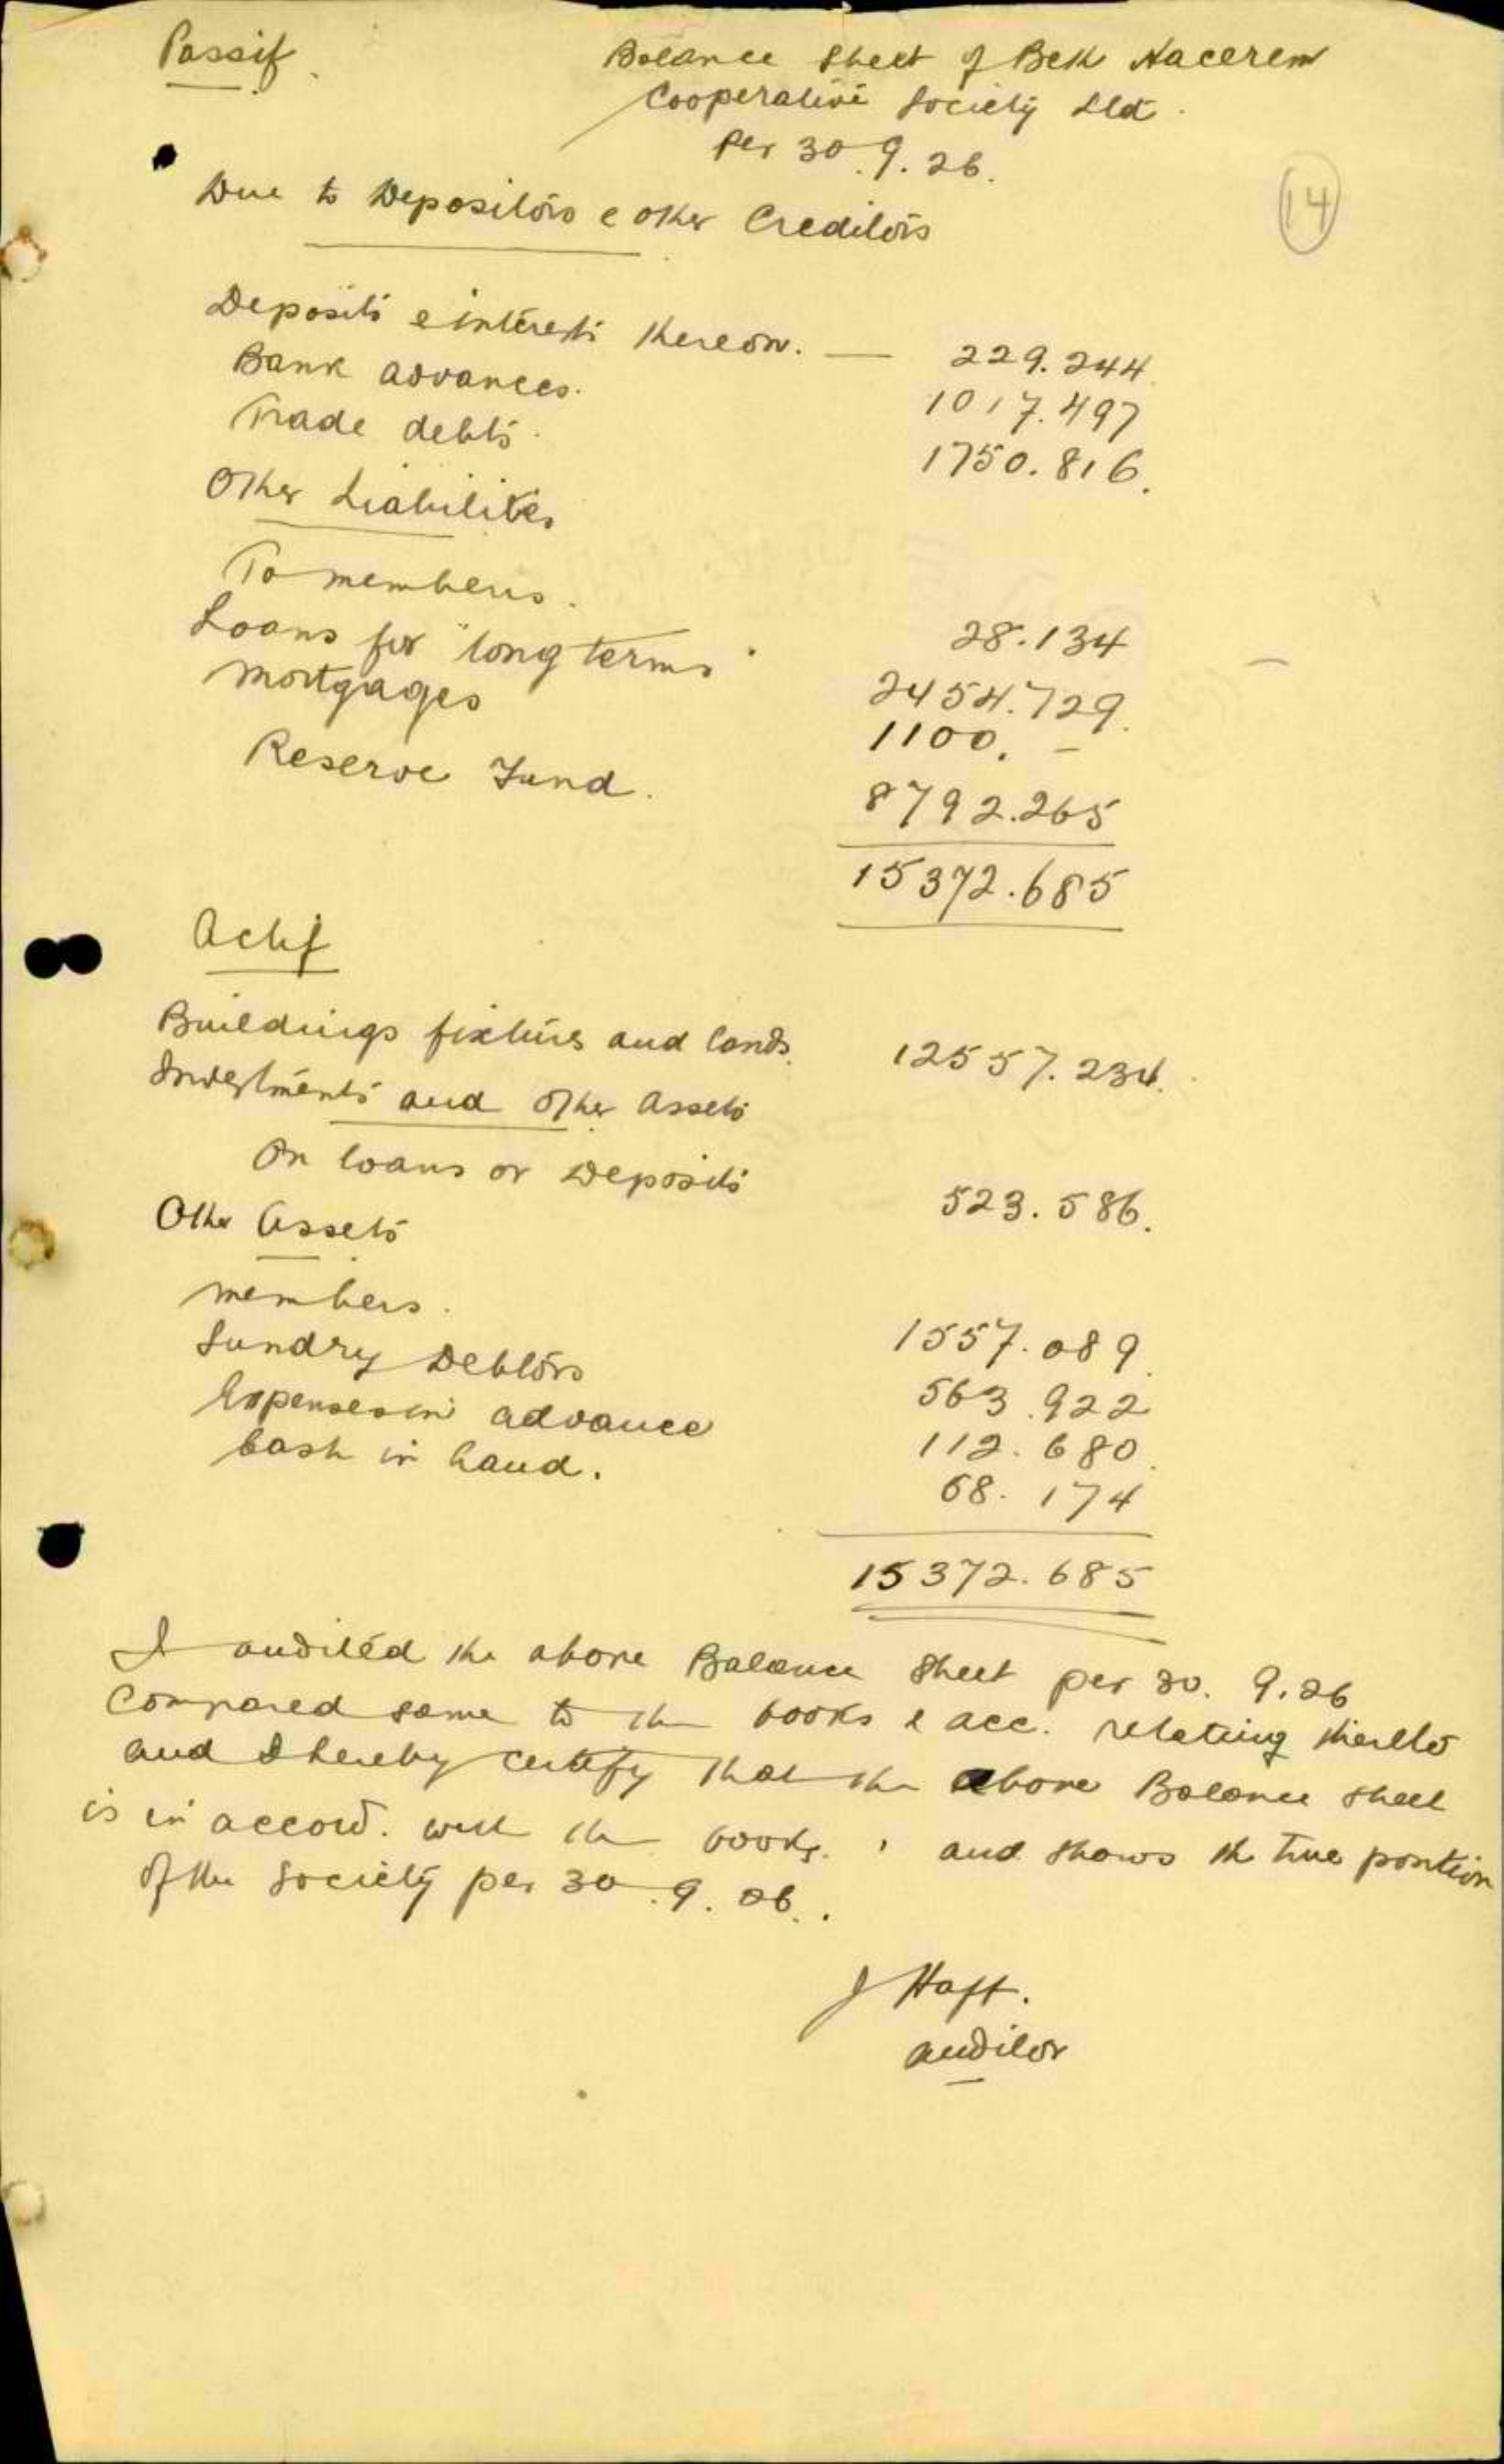 Passif.
Balance Sheet of Beth Hacerem
Cooperative Society Ltd.
Per 30.9.26.
14
Due to Depositors & other Creditors
Deposits & interests thereon. — 229.244
Bank advances. 1017.497
Trade debts. 1750.816.
Other Liabilities
To members. 28.134
Loans for "long terms" 2454.729.
Mortgages 1100. –
Reserve Fund. 8792.265
15372.685
Actif
Buildings fixtures and lands. 12557.234.
Investments and other assets
On loans or Deposits 523.586.
Other Assets
members. 1557.089
Sundry Debtors 563.922
Expenses in advance 112.680
Cash in hand. 58.174
15372.685
I audited the above Balance Sheet per 30. 9.26
Compared same to the books & acc. relating thereto
and I hereby certify that the above Balance sheet
is in accord. with the books. and shows the true position
of the Society per 30.9.26.
J Haft.
auditor